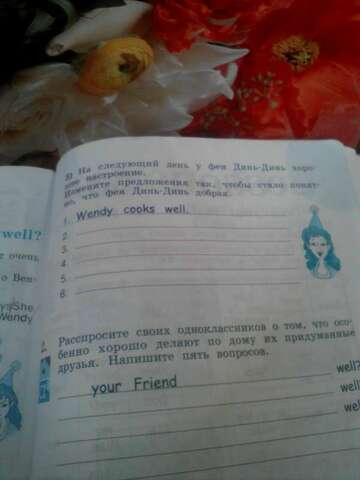 3) На следующий день у феи Динь-Динь хоро-
шее настроение.
Измените предложения так, чтобы стало понят-
но, что фея Динь-Динь добрая.
1. Wendy cooks well.
2.
3.
4.
5.
6.
well?
е очень
о Вен-
ysShe
Wendy
Расспросите своих одноклассников о том, что осо-
бенно хорошо делают по дому их придуманные
друзья. Напишите пять вопросов.
your Friend well?
well?
wel